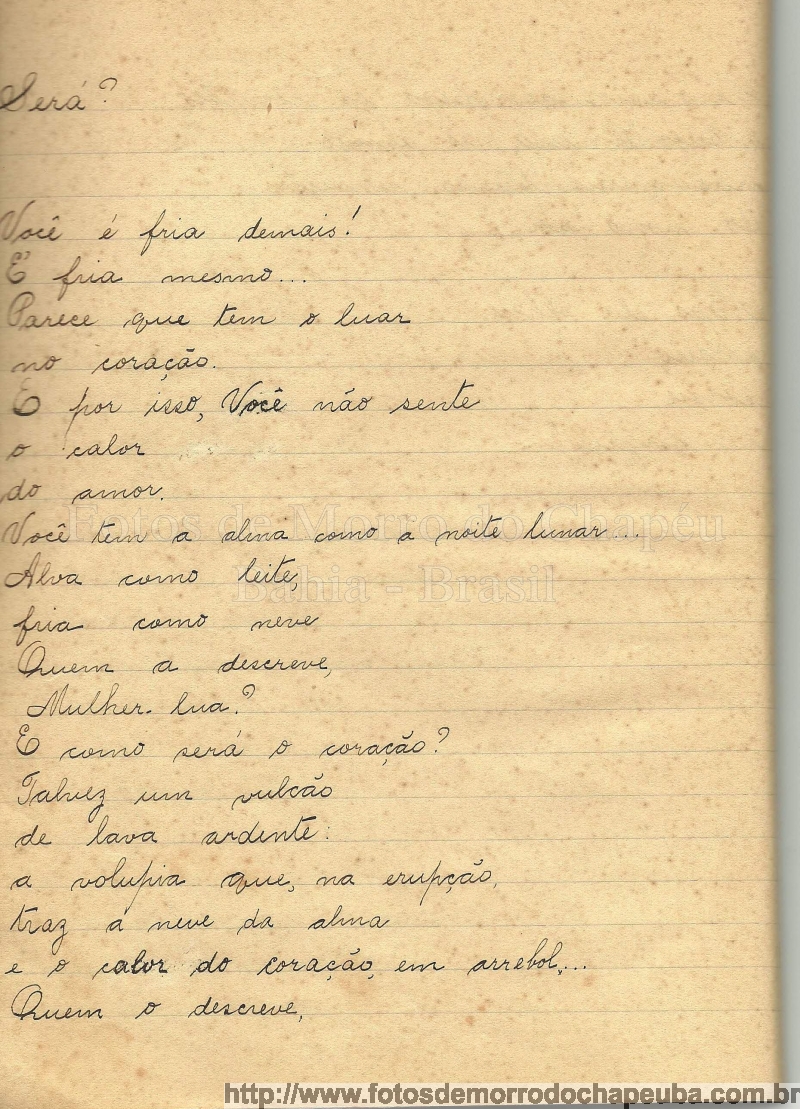 Será?
Você é fria demais!
É fria mesmo...
Parece que tem o luar
no coração.
E por isso, Você não sente
o calor
do amor.
Você tem a alma como a noite lunar...
Fotos de Morro do Chapeu
Alva como leite,
Bahia - Brasil
fria como neve
Quem a descreve,
Mulher-lua?
E como será o coração?
Talvez um vulcão
de lava ardente:
a volupia que, na erupção,
traz a neve da alma
e o calor do coração, em arrebol,...
Quem o descreve,
http://www.fotosdemorrodochapeuba.com.br